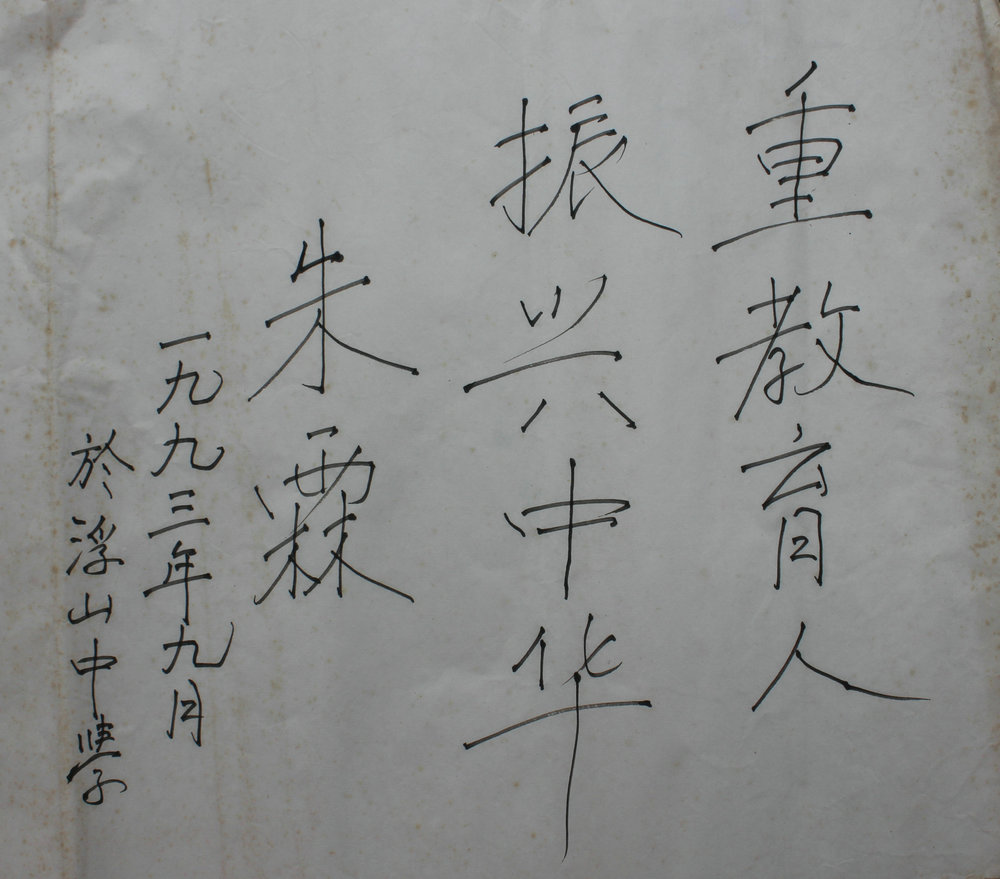 重教育人
振兴中华
朱霖
一九九三年九月
於浮山中學